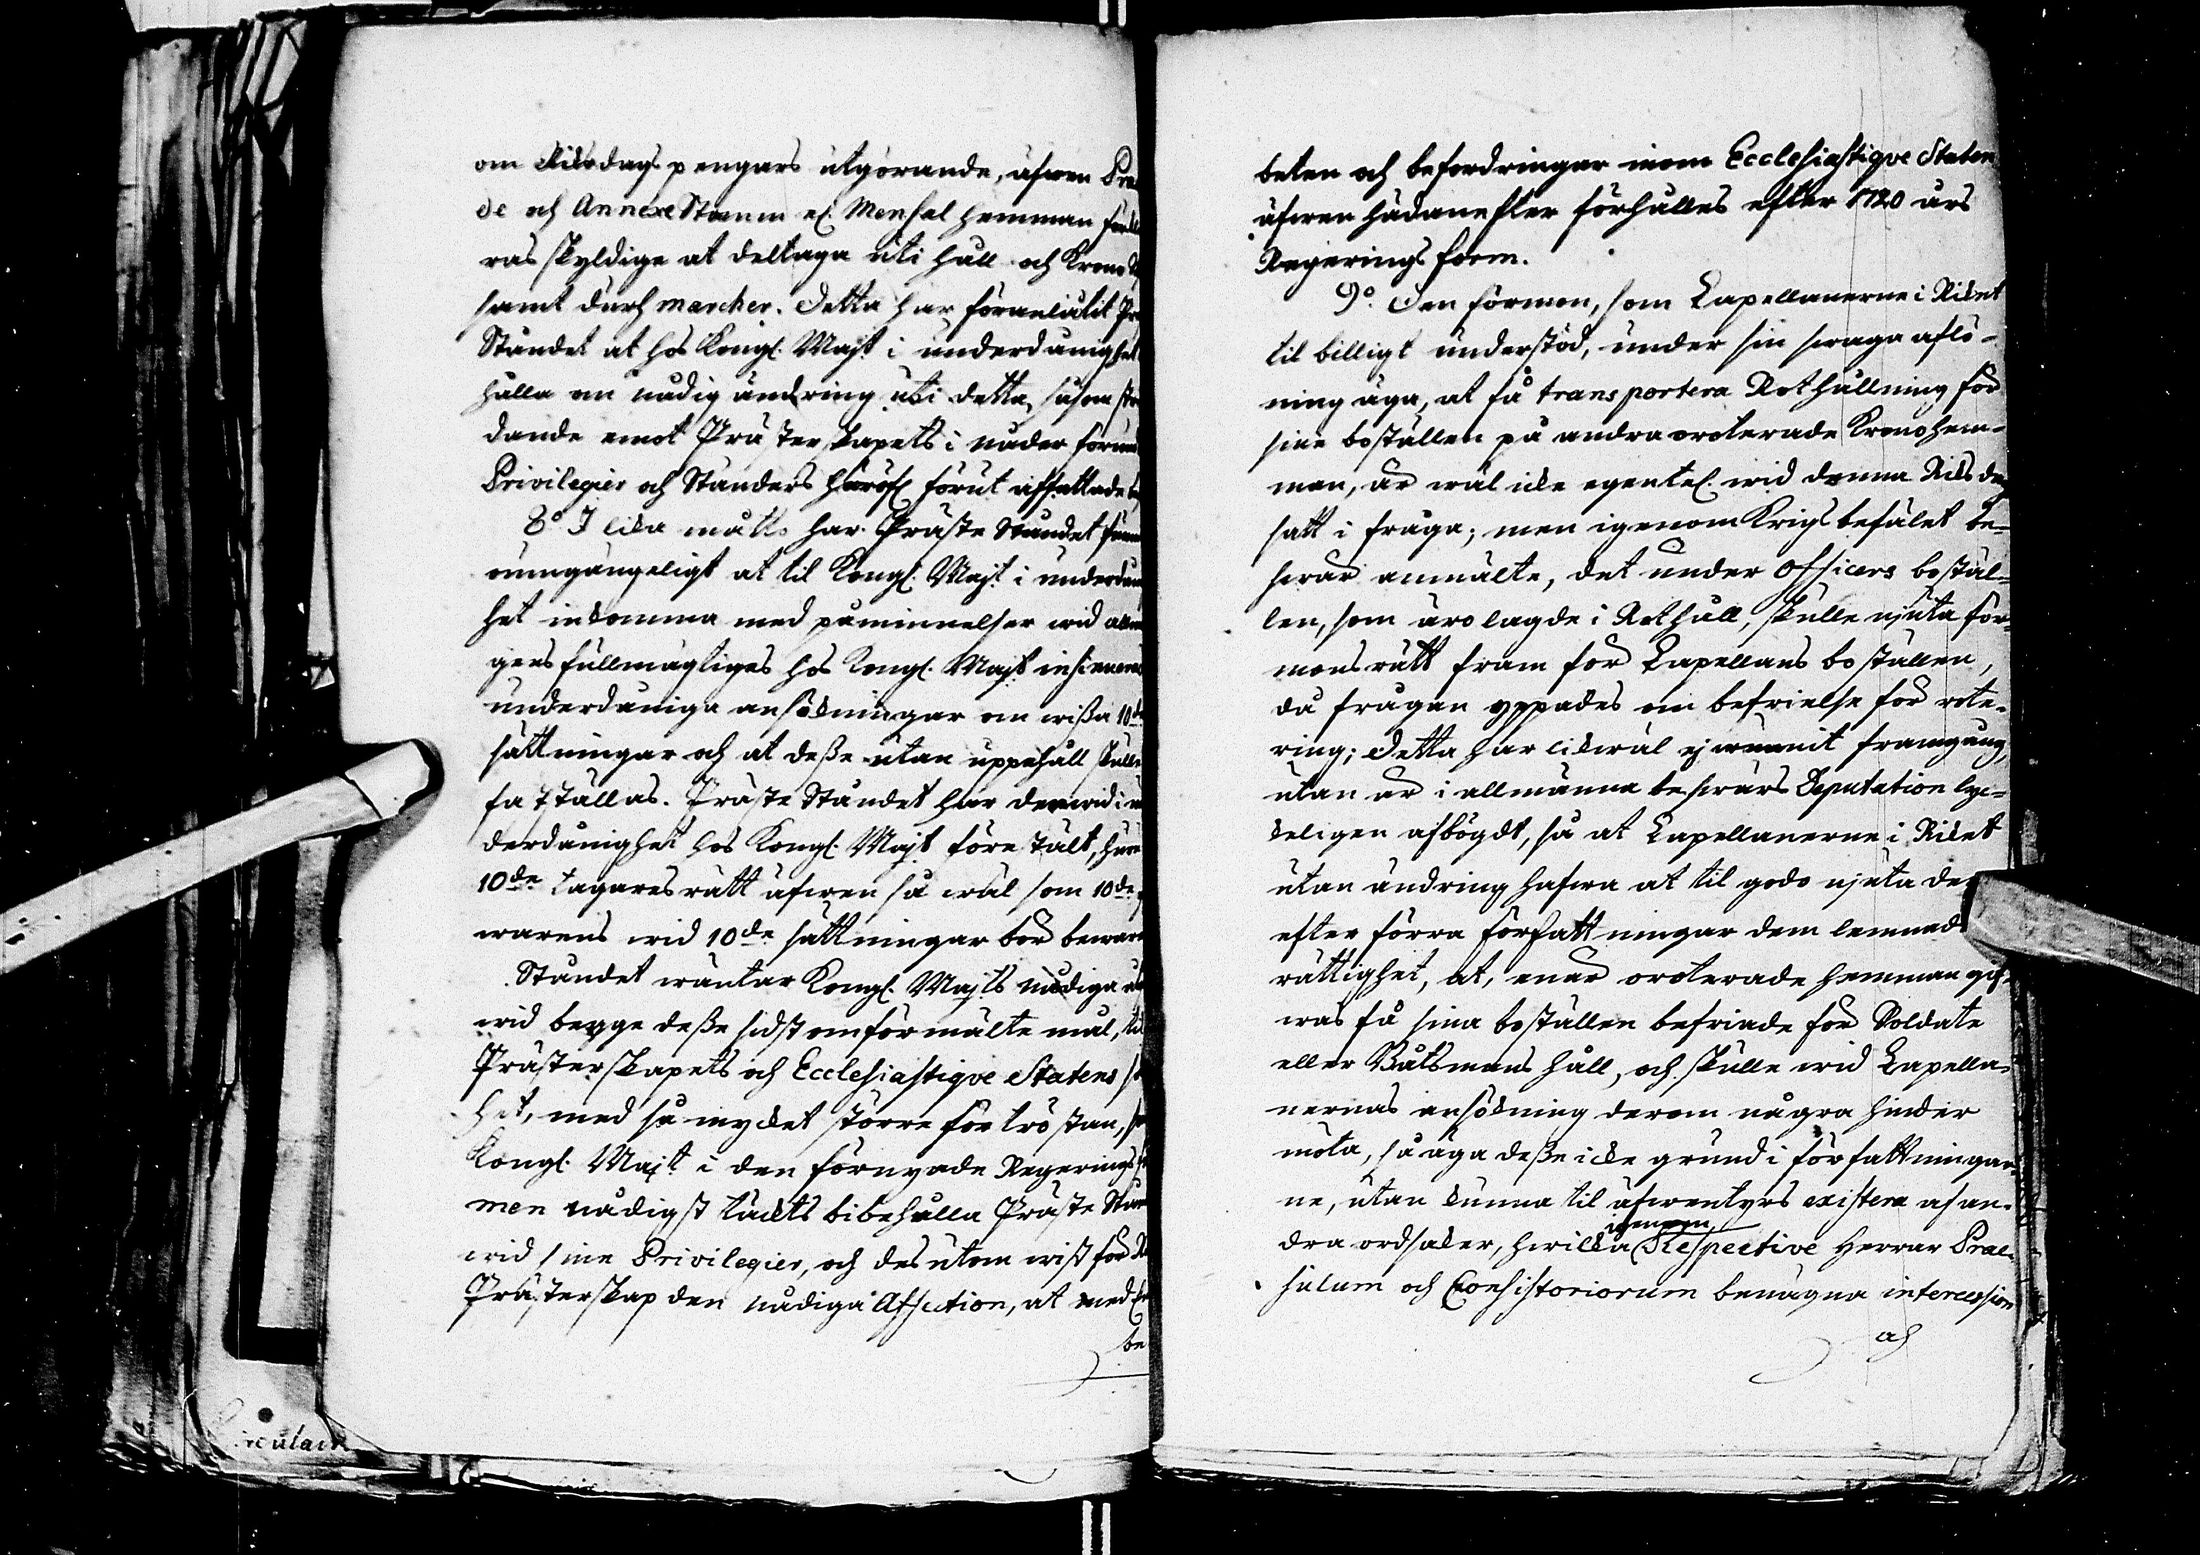 om Riksdags pengars utgörande, äfwen
de och Annexe Stamm el. Mensal hemman
ras skyldige at deltaga uti håll och Krono
samt durch marcher. Detta har föranlåtit
Ståndet at hos Kongl. Majt i underdånighet
hålla om nådig ändring uti detta, såsom
dande emot Prästerskapets i nåder
Privilegier och Ständers häröf. förut affattade
8o I lika måtto har Präste Ståndet
oumgängeligt at til Kongl. Majt i
het inkomma med påminnelser wid
gens fullmägtiges hos Kongl. Majt
underdåniga ansökningar om wißa 10de
sättningar och at deße utan uppehåll skulle
fastställas. Präste Ståndet har derwid i
derdånighet hos Kongl. Majt före stält, huru
10de tagares rätt äfwen så wäl som 10de
warens wid 10de sättningar bör bewaras
Ståndet wäntar Kongl. Majts nådiga
wid begge deße sidst omförmälte mål, til
Prästerskapets och Ecclesiastique Statens
het, med så mycket större förtröstan,
Kongl. Majt i den förnyade Regerings
men nådigst täckts bibehålla Präste
wid sine Privilegier, och des utom wist för
Prästerskap den nådiga Affection, at med
be
beten och befordringar inom Ecclesiastique Staten
äfwen hädanefter förhålles efter 1720 års
Regerings form.
9o. Den förmon, som Capellanerne i Riket
til billigt understöd, under sin swaga aflö-
ning äga, at få transportera Rothållning för
sine boställen på andra oroterade Kronohem-
man, är wäl icke egentel. wid denna Riksdag
satt i fråga; men igenom Krigsbefälet be-
swär anmälte, det under Officers bostäl-
len, som äro lagde i Rothåll, skulle njuta för-
mons rätt fram för Capellans boställen,
då frågan yppades om befrielse för rote-
ring; Detta har likwäl ej wunnit framgång,
utan är i allmänna beswärs Deputation lyc-
keligen afbögdt, så at Capellanerne i Riket
utan ändring hafwa at til godo njuta
efter förra författningar dem
rättighet, at, enär oroterade hemman
was få sina boställen befriade för Soldate
eller Båtsmans håll, och skulle wid Capella-
nernas ansökning derom några hinder
möta, så äga deße icke grund i författningar-
ne, utan kunna til äfwentyrs existera af an-
dra ordsaker, hwilka igenom Respective Herrar Prae-
sulum och Consistoriorum benägna intercession
och